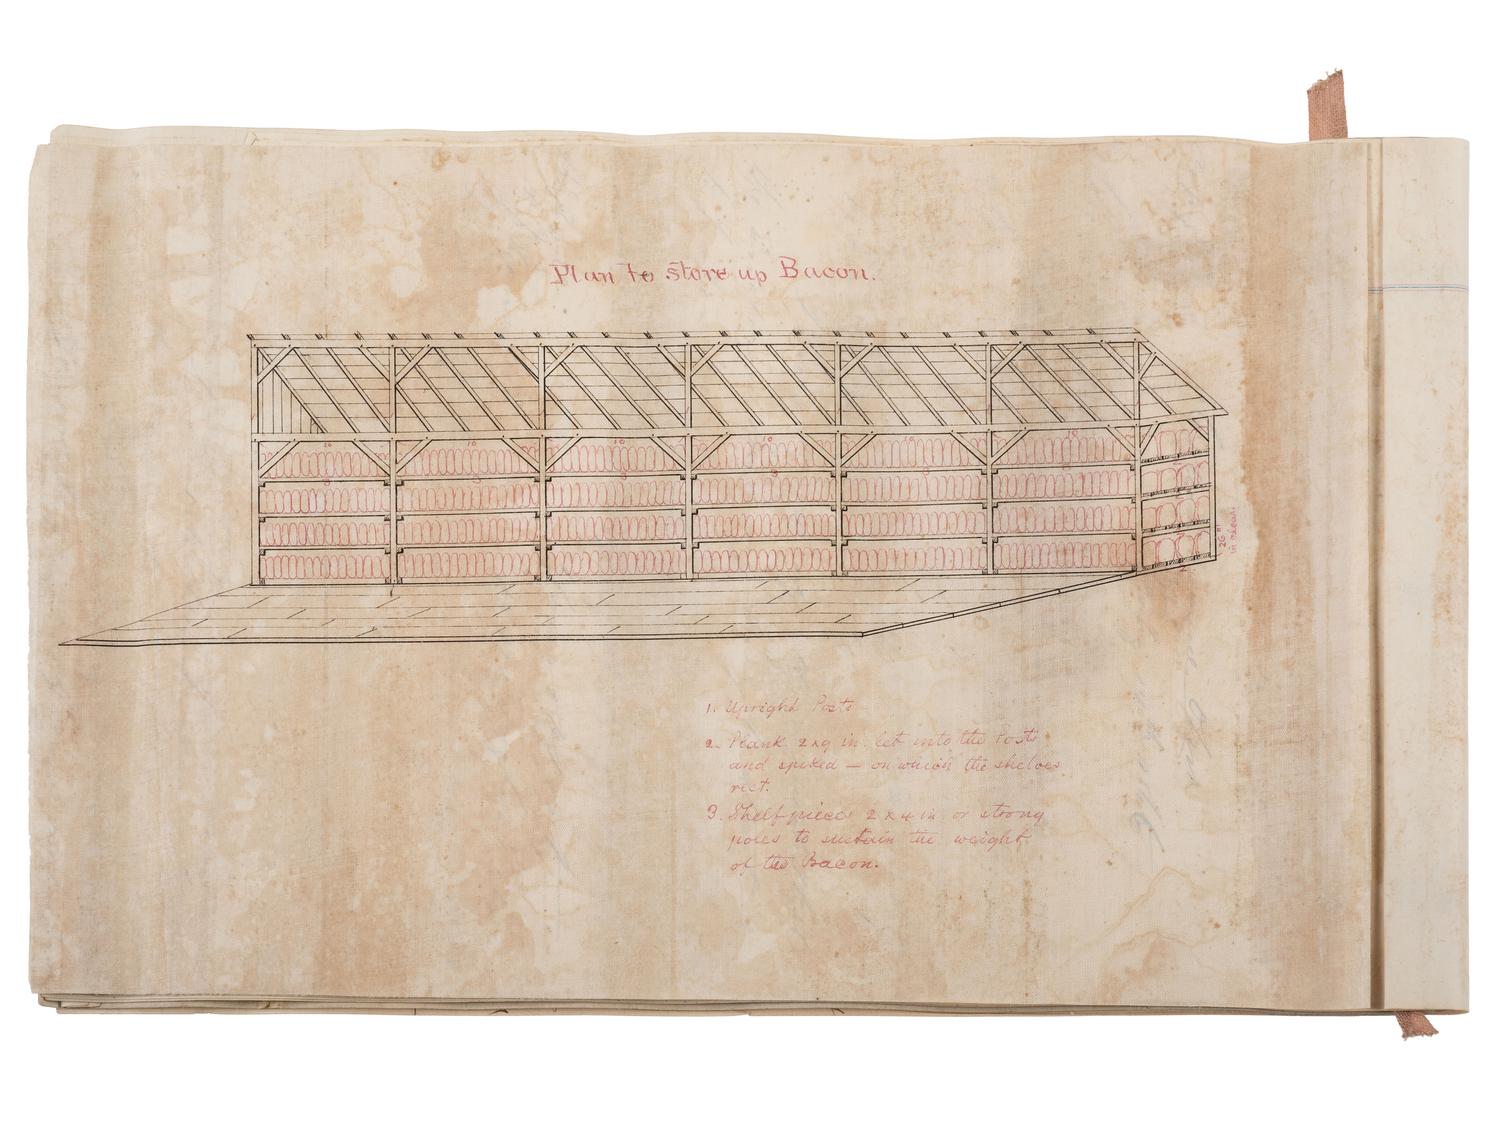 Plan to store up Bacon.
10
10
10
10
10
26 in
1. Upright Posts
2. Plank 2x9 in. let into the Posts
and spiked — on which the shelves
rest.
3. Shelf pieces 2 x 4 in or strong
poles to sustain the weight
of the Bacon.